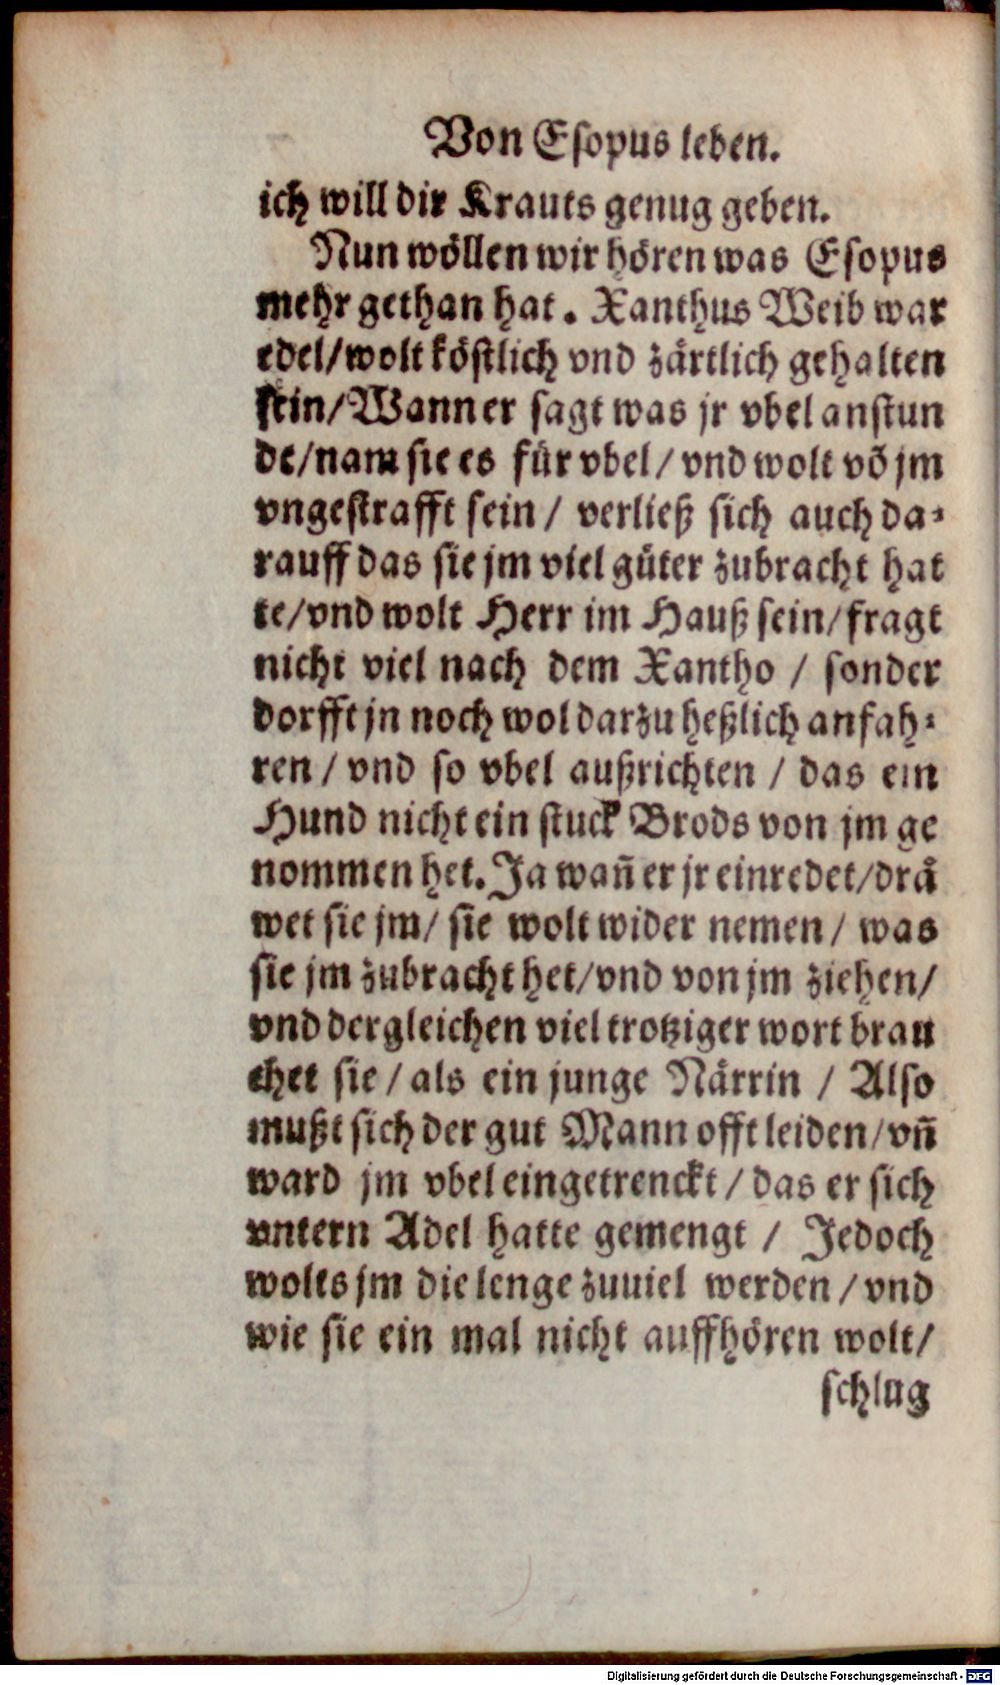 Von Esopus leben.
ich will dir Krauts genug geben.
Nun wöllen wir hören was Esopus
mehr gethan hat. Xanthus Weib war
edel/wolt köstlich vnd zärtlich gehalten
sein/Wann er sagt was jr vbel anstun
de/nam sie es für vbel/ vnd wolt võ jm
vngestrafft sein/ verließ sich auch da⸗
rauff das sie jm viel güter zubracht hat
te/vnd wolt Herr im Hauß sein/fragt
nicht viel nach dem Xantho / sonder
dorfft jn noch wol darzu heßlich anfah⸗
ren / vnd so vbel außrichten / das ein
Hund nicht ein stuck Brods von jm ge
nommen het. Ja wañ er jr einredet/drå
wet sie jm/ sie wolt wider nemen/ was
sie jm zubracht het/vnd von jm ziehen/
vnd dergleichen viel trotziger wort brau
chet sie / als ein junge Närrin / Also
mußt sich der gut Mann offt leiden/vñ
ward jm vbel eingetrenckt/das er sich
vntern Adel hatte gemengt / Jedoch
wolts jm die lenge zuuiel werden/vnd
wie sie ein mal nicht auffhören wolt/
schlug
Digitalisierung gefördert durch die Deutsche Forschungsgemeinschaft - DFG